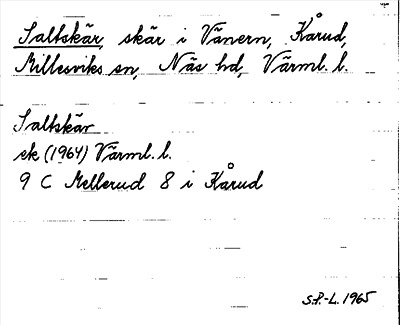 Saltskär, skär i Vänern, Kårud,
Millesviks sn, Näs hd, Värml. l.
Saltskär
ek (1964) Värml. l.
9 C Mellerud 8 i Kårud
S.P.-L. 1965